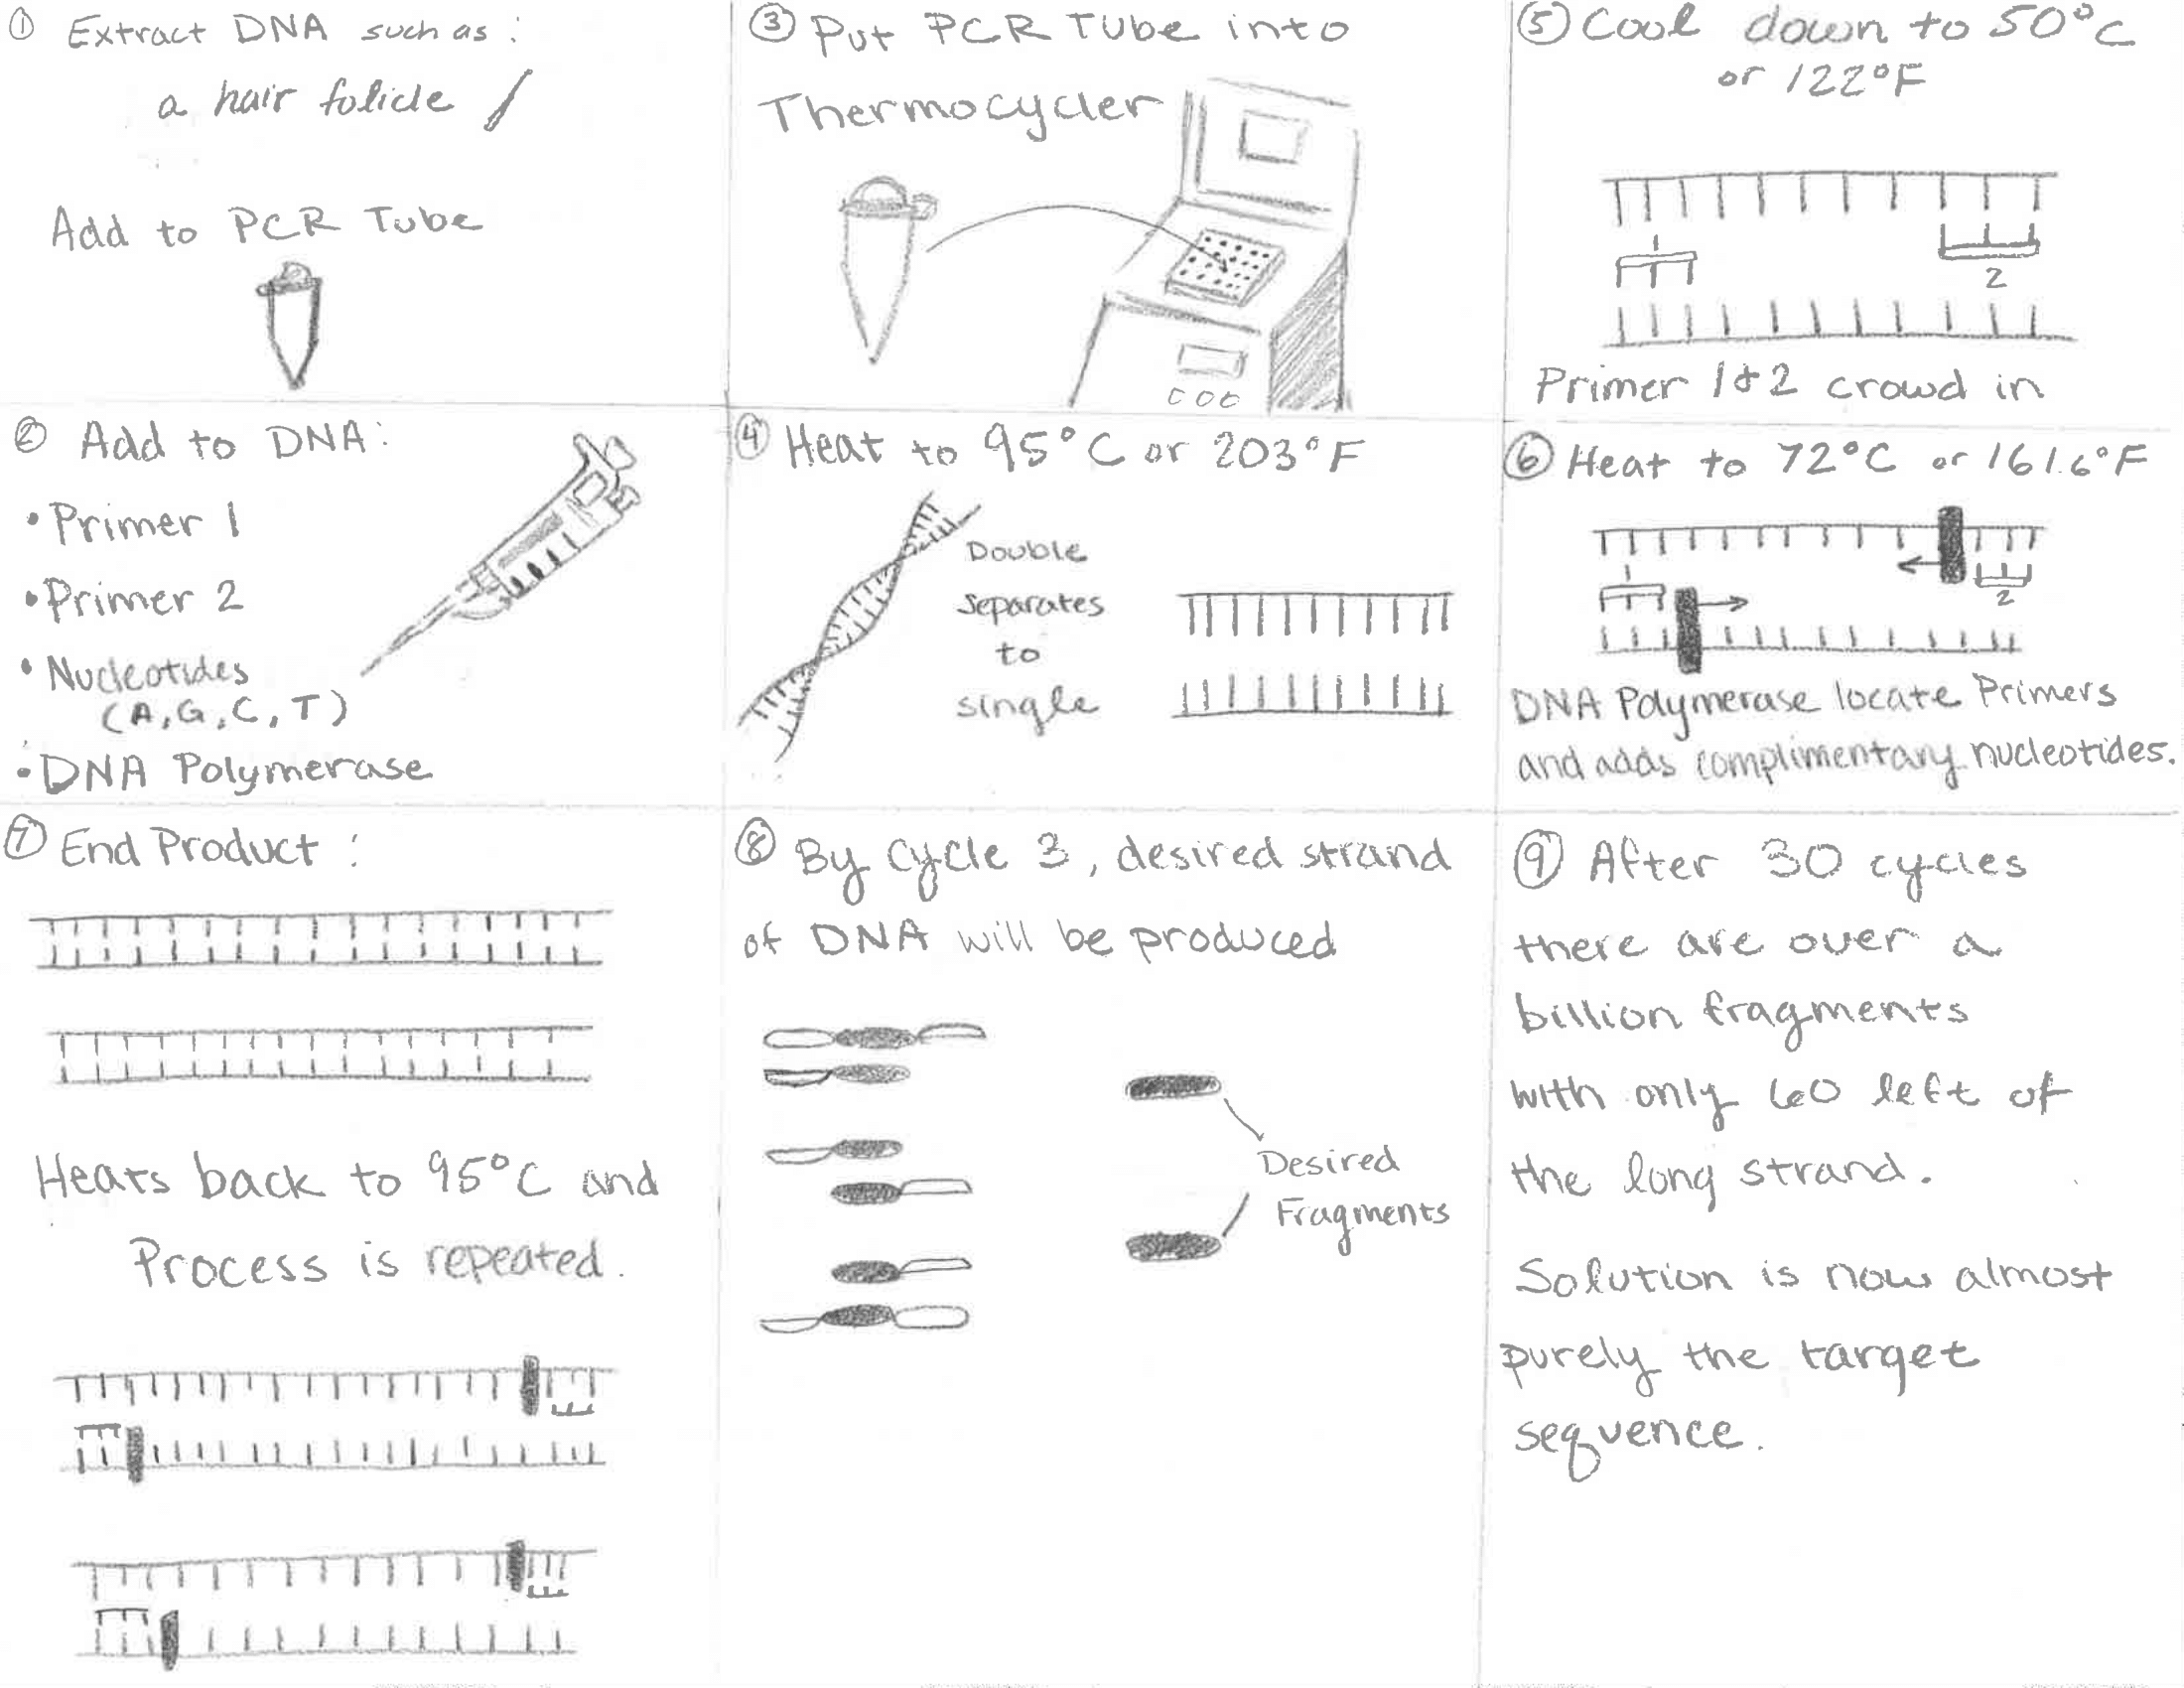 ① Extract DNA such as:
a hair folicle
Add to PCR Tube
② Add to DNA:
• Primer 1
• Primer 2
• Nucleotides
(A, G, C, T)
• DNA Polymerase
③ Put PCR Tube into
Thermocycler
④ Heat to 95°C or 203°F
Double
Separates
to
single
⑤ Cool down to 50°C
or 122°F
1
2
Primer 1 & 2 crowd in
⑥ Heat to 72°C or 161.6°F
1
2
DNA Polymerase locate Primers
and adds complimentary nucleotides.
⑦ End Product:
Heats back to 95°C and
Process is repeated.
⑧ By Cycle 3, desired strand
of DNA will be produced
Desired
Fragments
⑨ After 30 cycles
there are over a
billion fragments
with only 60 left of
the long strand.
Solution is now almost
purely the target
sequence.